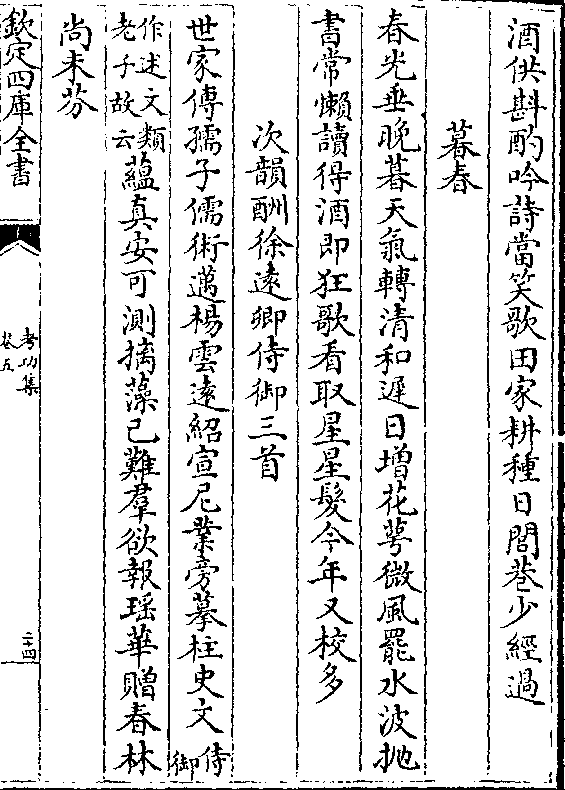 酒供斟酌吟詩當笑歌田家耕種日閭巷少經過
暮春
春光垂晚暮天氣轉清和遲日增花萼微風罷水波抛
書常懶讀得酒即狂歌看取星星髮今年又校多
次韻酬徐遠卿侍御三首
世家傳孺子儒術邁楊雲遠紹宣尼業旁摹柱史文侍御
作述文類老子故云蘊真安可測摛藻已難羣欲報瑶華贈春林
尚未芬
欽定四庫全書
考功集
卷五
二十四